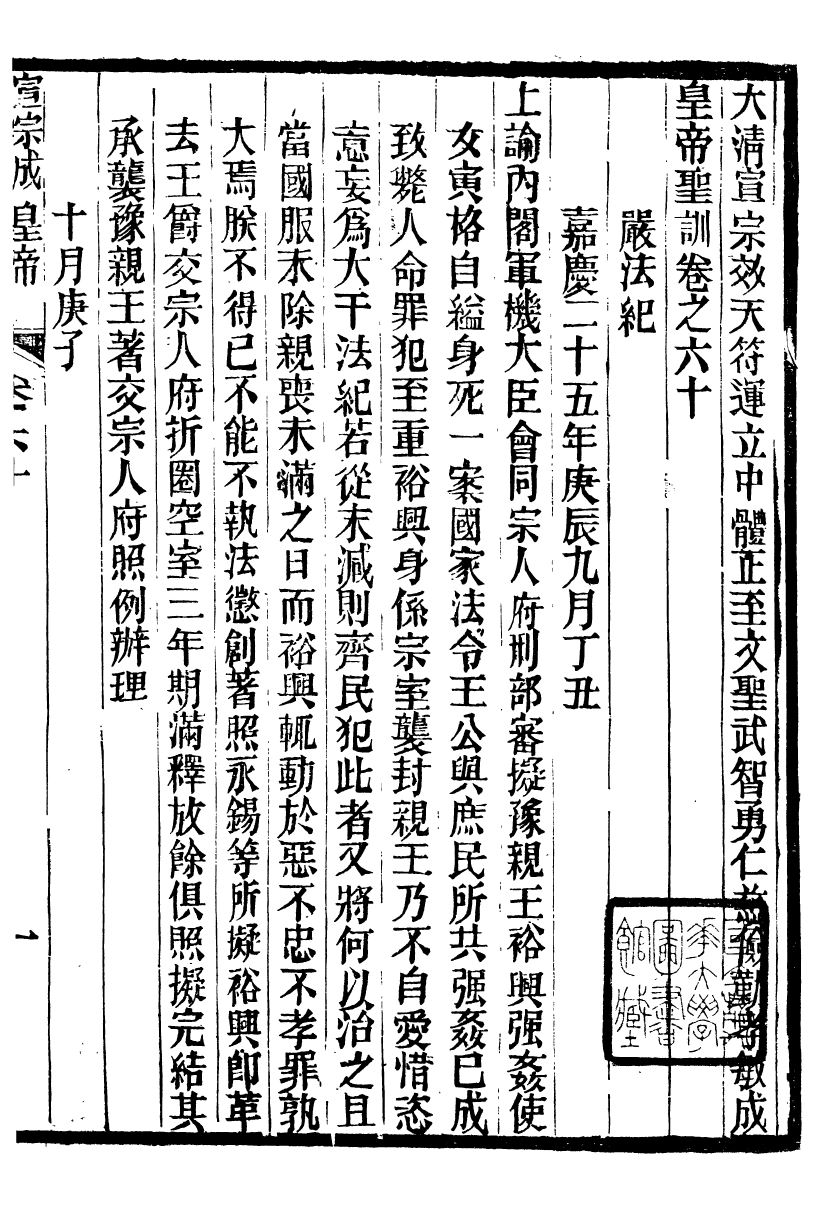 大清宣宗效天符運立中體正至文聖武智勇仁慈儉勤孝敏成
皇帝聖訓卷之六十
嚴法紀
嘉慶二十五年庚辰九月丁丑
上諭內閣軍機大臣會同宗人府刑部審擬豫親王裕興强姦使
女寅格自縊身死一案國家法令王公與庶民所共强姦已成
致斃人命罪犯至重裕興身係宗室襲封親王乃不自愛惜恣
意妄爲大干法紀若從末減則齊民犯此者又將何以治之且
當國服未除親喪未滿之日而裕興輒動於惡不忠不孝罪孰
大焉朕不得已不能不執法懲創著照永錫等所擬裕興卽革
去王爵交宗人府折圈空室三年期滿釋放餘俱照擬完結其
承襲豫親王著交宗人府照例辦理
十月庚子
宣宗成皇帝 卷六十 一